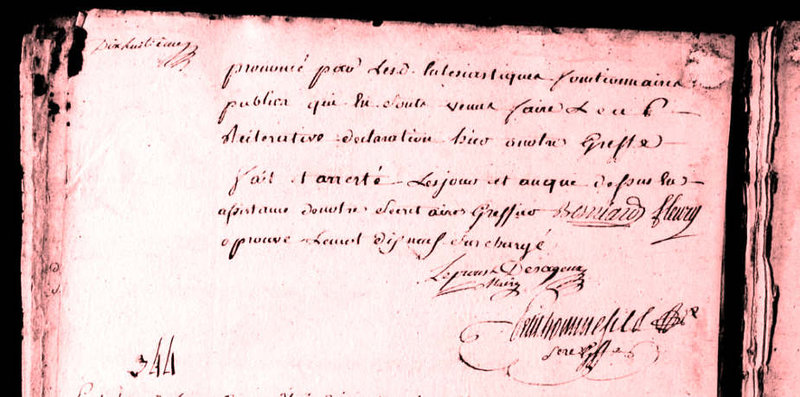 Dixhuitieme
prononcé par Lesd. Eclesiastiques fonctionnaires
publics qui en sont venus faire Leur
Reiterative declaration hier à notre Greffe
fait et arresté Les jour et an que dessus
assistance de notre Secretaire Greffier Bernard fleury
aprouvé Le mot dix neuf surchargé
Leproust Desageux
Maire
petithommefils
Secre
344